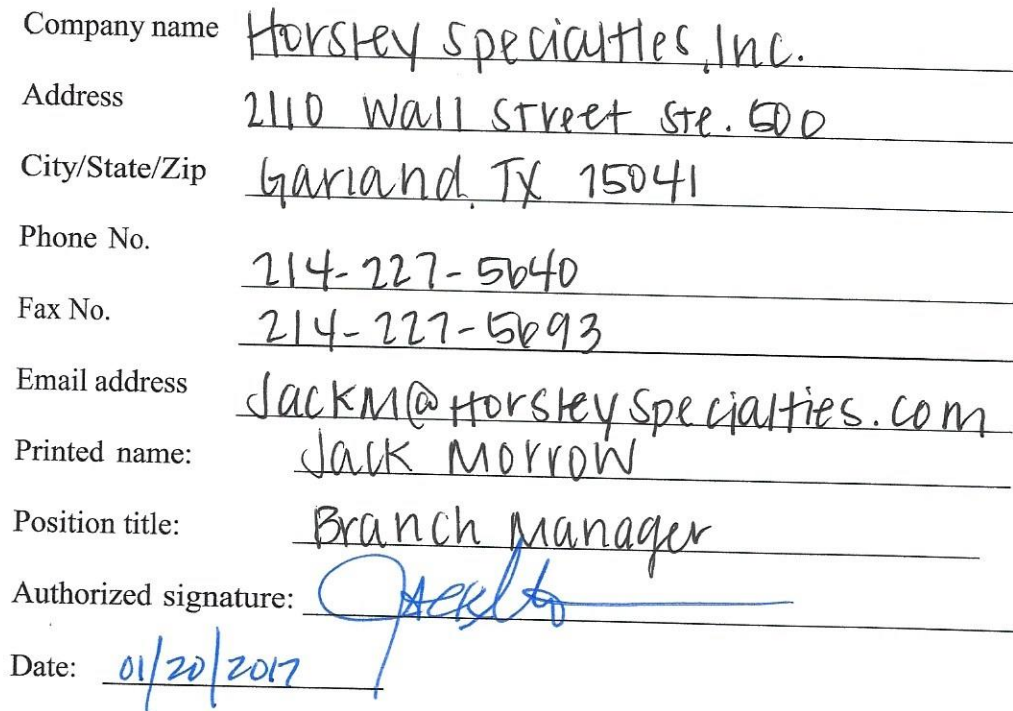 Company name Horsley Specialties, Inc.
Address 2110 Wall Street Ste. 500
City/State/Zip Garland, TX 75041
Phone No. 214-227-5640
Fax No. 214-227-5693
Email address JackM@HorsleySpecialties.com
Printed name: Jack Morrow
Position title: Branch Manager
Authorized signature:
Date: 01/20/2017